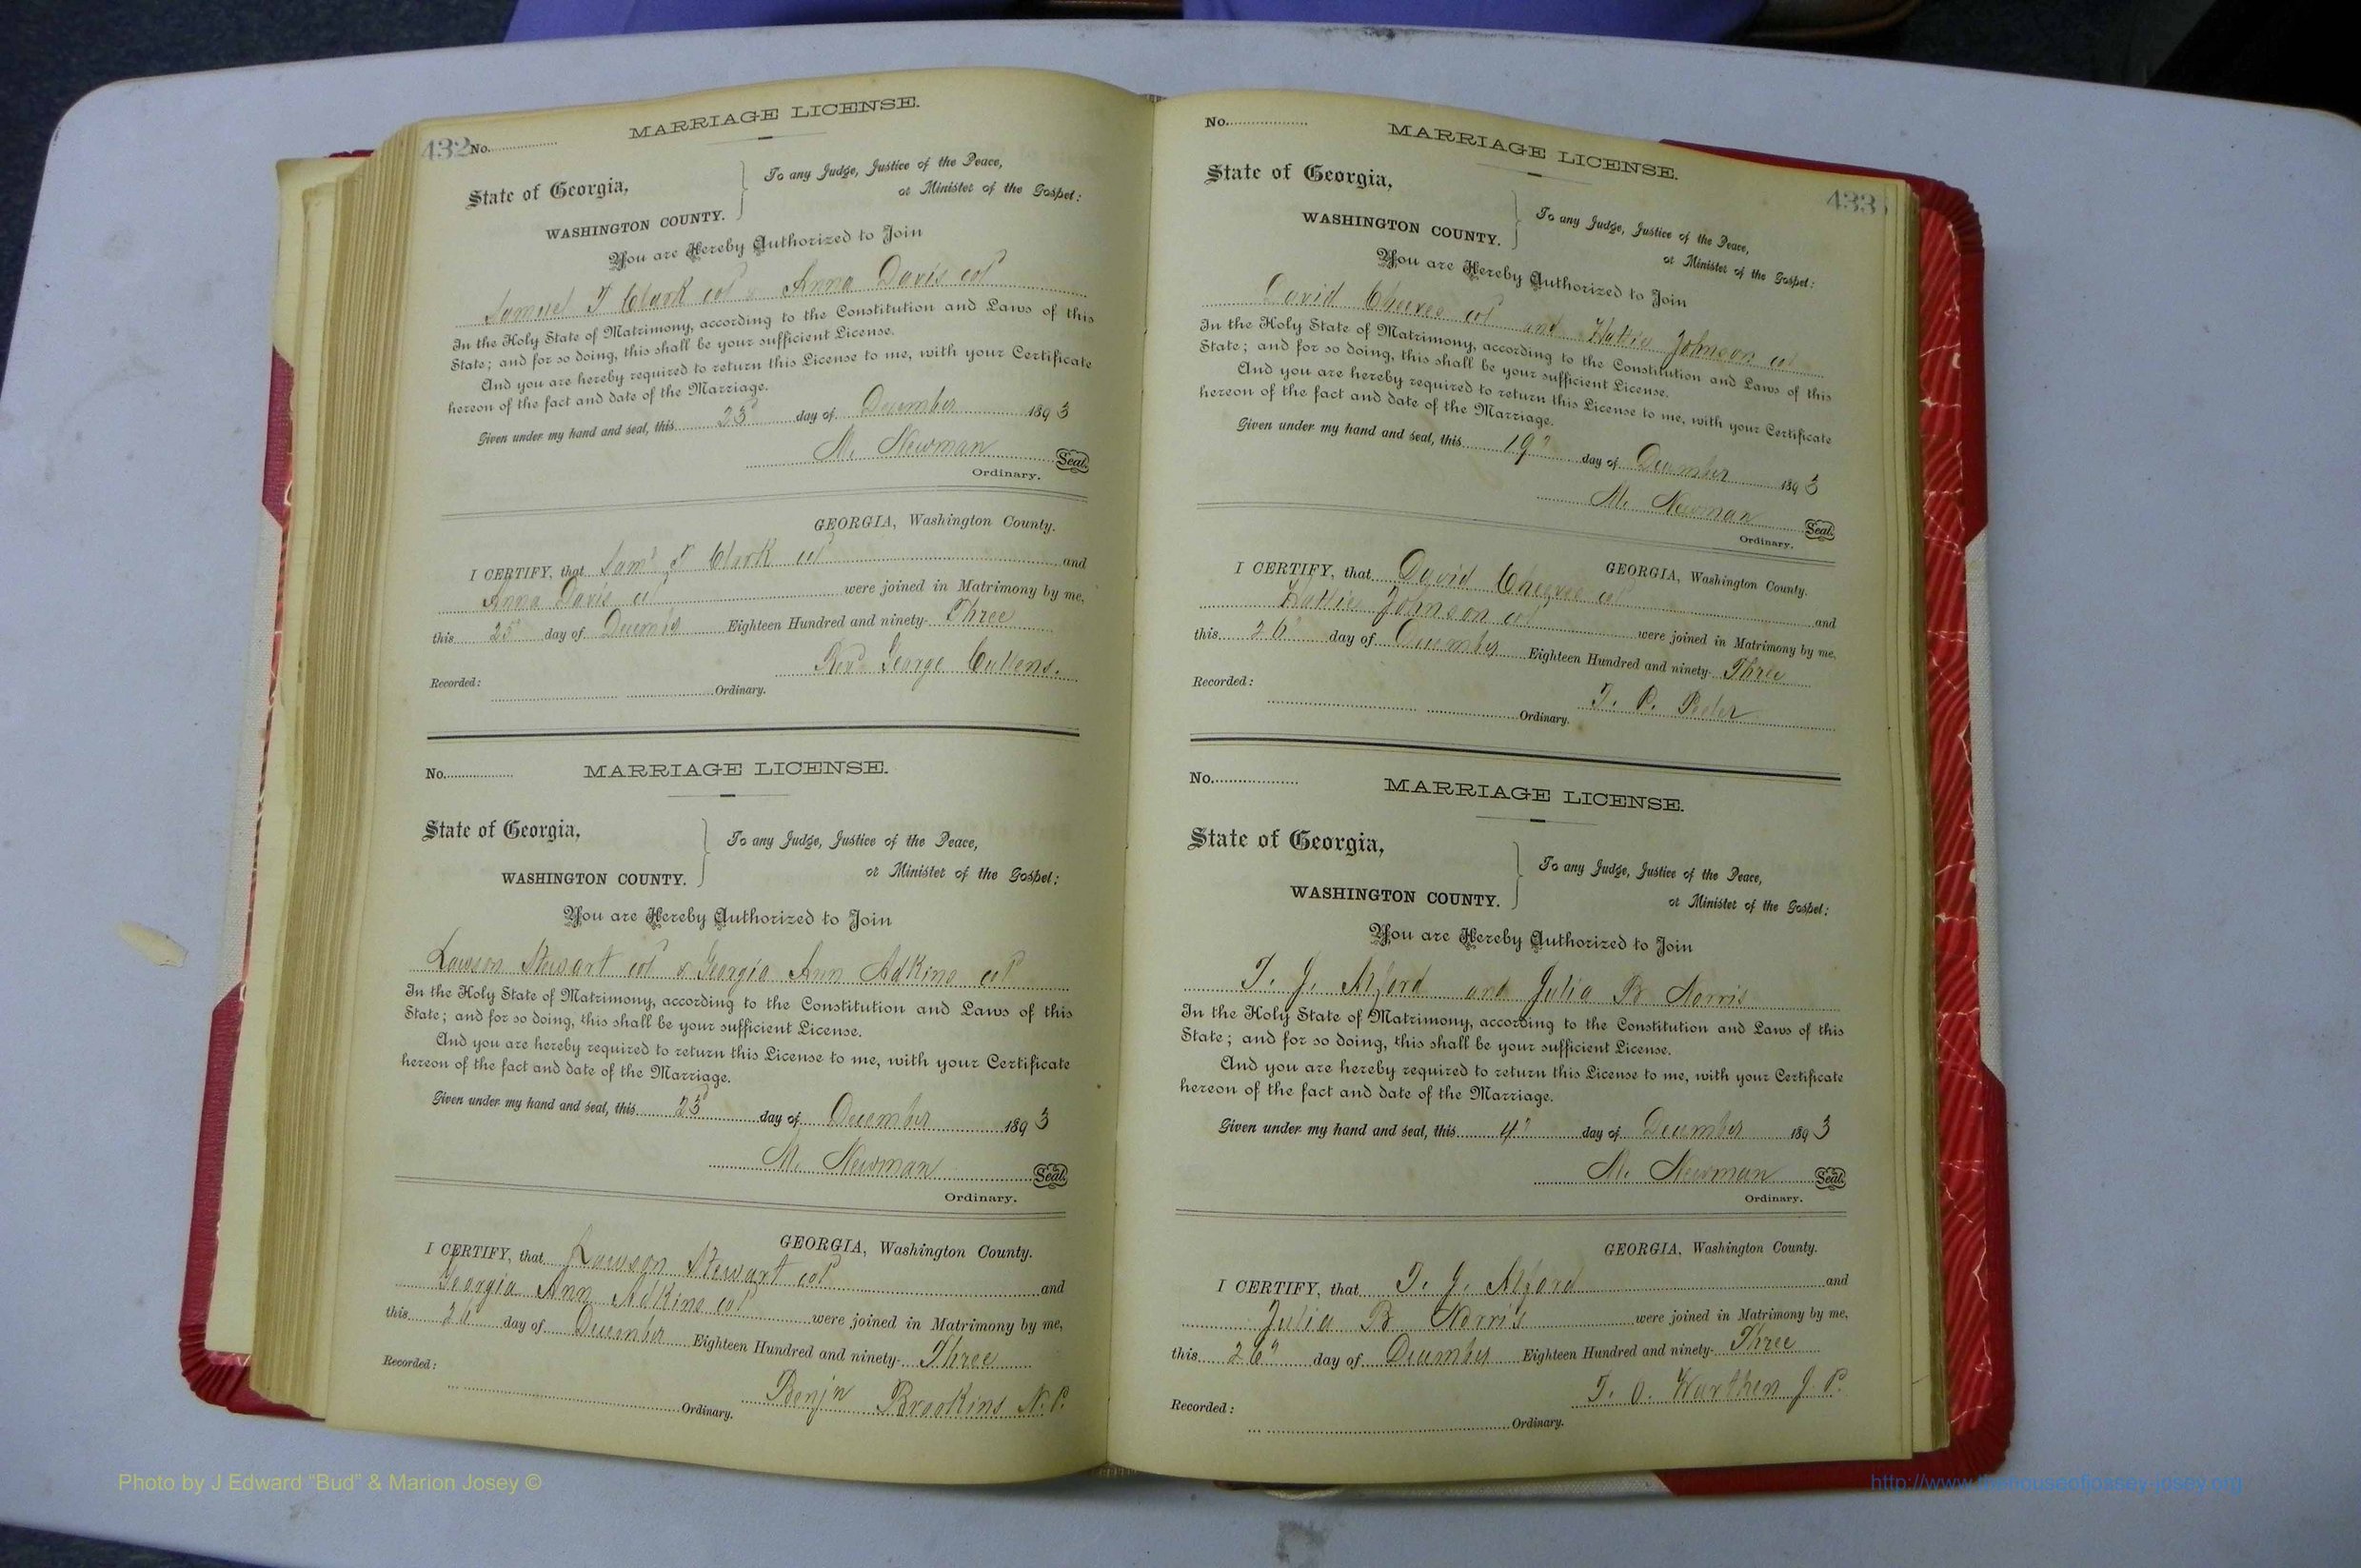 432 No.
MARRIAGE LICENSE.
State of Georgia,
WASHINGTON COUNTY.
To any Judge, Justice of the Peace,
or Minister of the Gospel:
You are Hereby Authorized to Join
Samuel T Clark col & Anna Davis col
In the Holy State of Matrimony, according to the Constitution and Laws of this
State; and for so doing, this shall be your sufficient License.
And you are hereby required to return this License to me, with your Certificate
hereon of the fact and date of the Marriage.
Given under my hand and seal, this 23d day of December 1893
M. Newman Seal.
Ordinary.
GEORGIA, Washington County.
I CERTIFY, that Saml T Clark col and
Anna Davis col were joined in Matrimony by me,
this 25 day of Decem Eighteen Hundred and ninety- Three
Revd George Cullens.
Recorded: Ordinary.
No.
MARRIAGE LICENSE.
State of Georgia,
WASHINGTON COUNTY.
To any Judge, Justice of the Peace,
or Minister of the Gospel:
You are Hereby Authorized to Join
Lawson Stewart col & Georgia Ann Adkins col
In the Holy State of Matrimony, according to the Constitution and Laws of this
State; and for so doing, this shall be your sufficient License.
And you are hereby required to return this License to me, with your Certificate
hereon of the fact and date of the Marriage.
Given under my hand and seal, this 23d day of December 1893
M. Newman Seal.
Ordinary.
GEORGIA, Washington County.
I CERTIFY, that Lawson Stewart col and
Georgia Ann Adkins col were joined in Matrimony by me,
this day of December Eighteen Hundred and ninety- Three
Benjn Brookins N. P.
Recorded: Ordinary.
No.
MARRIAGE LICENSE.
433
State of Georgia,
WASHINGTON COUNTY.
To any Judge, Justice of the Peace,
or Minister of the Gospel:
You are Hereby Authorized to Join
David Cheeves col and Hattie Johnson col
In the Holy State of Matrimony, according to the Constitution and Laws of this
State; and for so doing, this shall be your sufficient License.
And you are hereby required to return this License to me, with your Certificate
hereon of the fact and date of the Marriage.
Given under my hand and seal, this 19 day of December 1893
M. Newman Seal.
Ordinary.
GEORGIA, Washington County.
I CERTIFY, that David Cheeves col and
Hattie Johnson col were joined in Matrimony by me,
this 26 day of December Eighteen Hundred and ninety- Three
T. P.
Recorded: Ordinary.
No.
MARRIAGE LICENSE.
State of Georgia,
WASHINGTON COUNTY.
To any Judge, Justice of the Peace,
or Minister of the Gospel:
You are Hereby Authorized to Join
T. J. Alford and Julia B Norris
In the Holy State of Matrimony, according to the Constitution and Laws of this
State; and for so doing, this shall be your sufficient License.
And you are hereby required to return this License to me, with your Certificate
hereon of the fact and date of the Marriage.
Given under my hand and seal, this 4 day of December 1893
M. Newman Seal.
Ordinary.
GEORGIA, Washington County.
I CERTIFY, that T. J. Alford and
Julia B Norris were joined in Matrimony by me,
this 26 day of December Eighteen Hundred and ninety- Three
T. O. Warthen J. P.
Recorded: Ordinary.
Photo by J Edward "Bud" & Marion Josey ©
http://www.thehouseofjossey-josey.org